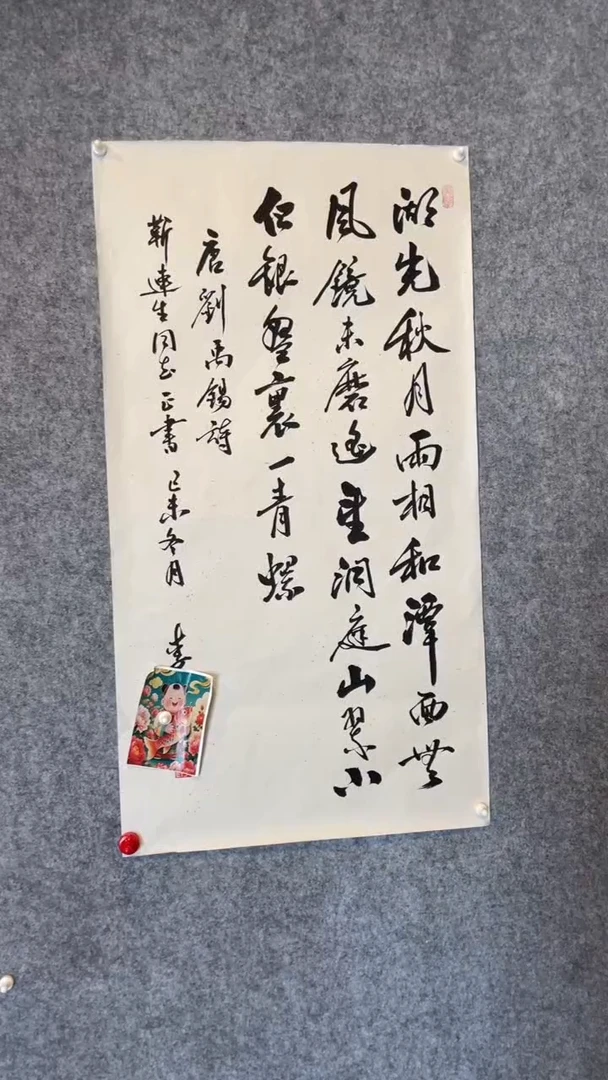 湖光秋月兩相和潭面無
風鏡未磨遥望洞庭山翠小
白銀盤裏一青螺
唐劉禹錫詩
靳連生同志正書 己未冬月 李